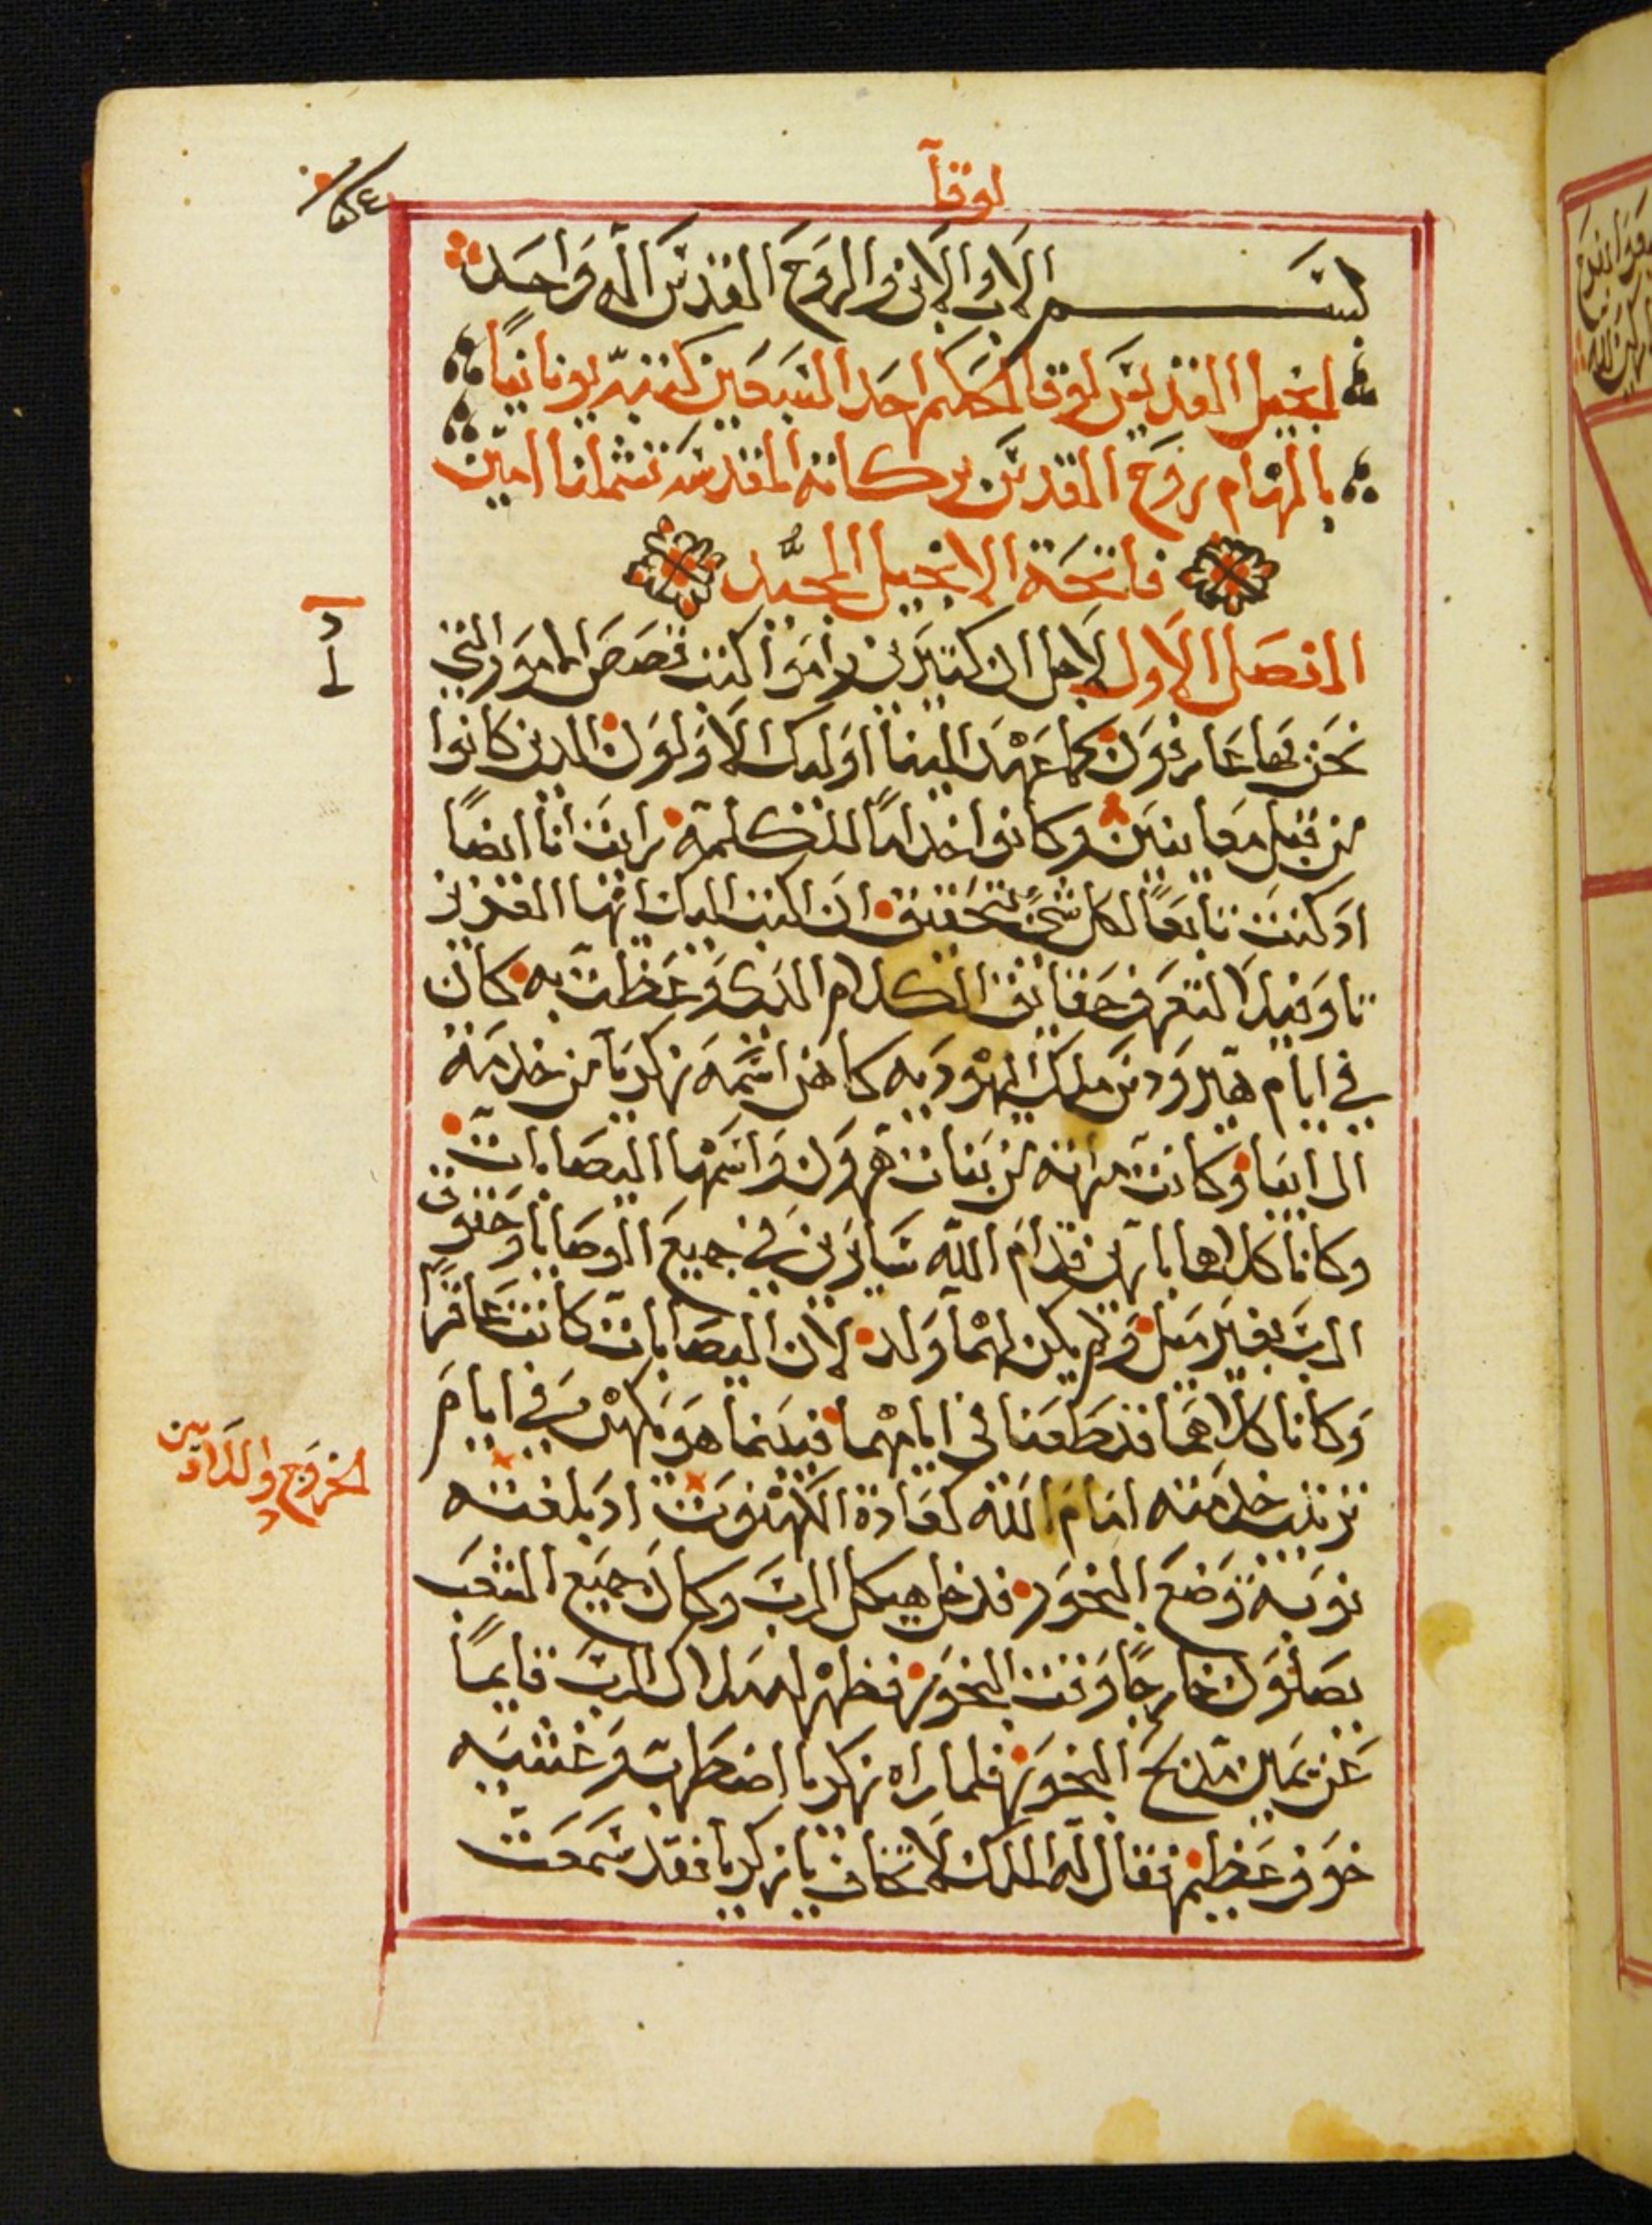 لوقا
بسم الاب والابن والروح القدس اله واحد
انجيل القديس لوقا الحكيم احد السبعين كتبه يونانيًا
بالهام روح القدس بركاته المقدسه تشملنا امين
فاتحة الانجيل المجيد
الفصل الاول لاجل ان كثيرين راموا كتب قصص الامور التي
نحن بها عارفون كما عهد الينا اوليك الاولون الدين كانوا
من قبل معاينين وكانوا خدامًا للكلمة رايت انا ايضًا
اد كنت تابعًا لكل شي بتحقيق ان اكتب اليك ايها العزيز
تاوفيلا لتعرف حقايق الكلام الدي وعظت به كان
في ايام هيرودس ملك اليهوديه كاهن اسمه زكريا من خدمة
ال ابيا وكانت امراته من بنات هرون واسمها اليصابات
وكانا كلاهما بارين قدام الله سايرين في جميع الوصايا وحقوق
الرب بغير ميل ولم يكن لهما ولد لان اليصابات كانت عاقرًا
وكانا كلاهما قد طعنا في ايامهما فبينما هو يكهن في ايام
ترتيب خدمته امام الله كعادة الكهنوت اد بلغته
نوبة وضع البخور فدخل هيكل الرب وكان جميع الشعب
يصلون خارجًا وقت البخور فظهر له ملاك الرب قايمًا
عن يمين مدبح البخور فلما راه زكريا اضطرب وغشيه
خوف عظيم فقال له الملاك لا تخاف يا زكريا فقد سمعت
الخروج واللاديين